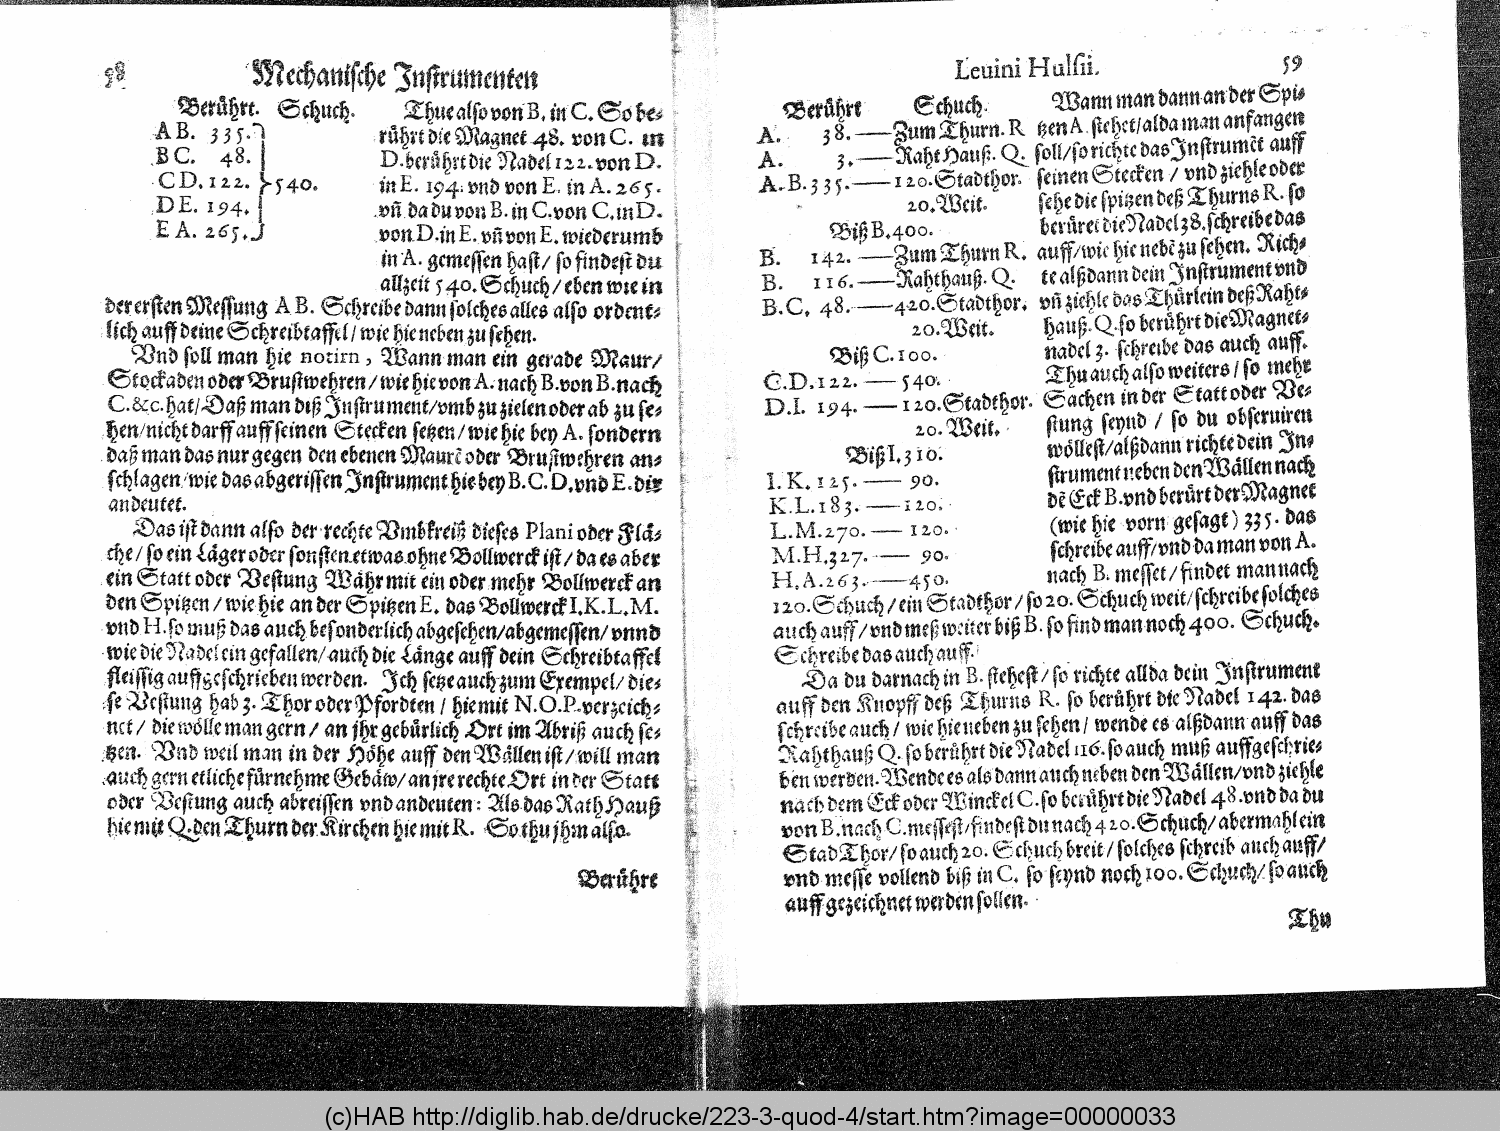 58 Mechanische Instrumenten
Berührt. Schuch.
A B. 335.
B C. 48.
C D. 122. } 540.
D E. 194.
E A. 265.
Thue also von B. in C. So be-
rührt die Magnet 48. von C. in
D. berührt die Nadel 122. von D.
in E. 194. vnd von E. in A. 265.
vñ da du von B. in C. von C. in D.
von D. in E. vñ von E. wiederumb
in A. gemessen hast / so findest du
allzeit 540. Schuch / eben wie in
der ersten Messung A B. Schreibe dann solches alles also ordent-
lich auff deine Schreibtaffel / wie hie neben zu sehen.
Vnd soll man hie notirn , Wann man ein gerade Maur /
Stockaden oder Brustwehren / wie hie von A. nach B. von B. nach
C. &c. hat / Daß man diß Instrument / vmb zu zielen oder ab zu se-
hen / nicht darff auff seinen Stecken setzen / wie hie bey A. sondern
daß man das nur gegen den ebenen Maurẽ oder Brustwehren an-
schlagen / wie das abgerissen Instrument hie bey B. C. D. vnd E. dir
andeutet.
Das ist dann also der rechte Vmbkreiß dieses Plani oder Flä-
che / so ein Läger oder sonsten etwas ohne Bollwerck ist / da es aber
ein Statt oder Vestung Währ mit ein oder mehr Bollwerck an
den Spitzen / wie hie an der Spitzen E. das Bollwerck I. K. L. M.
vnd H. so muß das auch besonderlich abgesehen / abgemessen / vnnd
wie die Nadel eingefallen / auch die Länge auff dein Schreibtaffel
fleissig auffgeschrieben werden. Ich setze auch zum Exempel / die-
se Vestung hab 3. Thor oder Pfordten / hie mit N. O. P. verzeich-
net / die wölle man gern / an jhr gebürlich Ort im Abriß auch se-
tzen. Vnd weil man in der Höhe auff den Wällen ist / will man
auch gern etliche fürnehme Gebäw / an jre rechte Ort in der Statt
oder Vestung auch abreissen vnd andeuten: Als das Rath Hauß
hie mit Q. den Thurn der Kirchen hie mit R. So thu jhm also.
Berührt
Leuini Hulsii. 59
Berührt Schuch.
A. 38. — Zum Thurn. R
A. 3. — Raht Hauß. Q.
A. B. 335. — 120. Stadthor.
20. Weit.
Biß B. 400.
B. 142. — Zum Thurn R.
B. 116. — Rahthauß. Q.
B. C. 48. — 420. Stadthor.
20. Weit.
Biß C. 100.
C. D. 122. — 540.
D. I. 194. — 120. Stadthor.
20. Weit.
Biß I. 310.
I. K. 125. — 90.
K. L. 183. — 120.
L. M. 270. — 120.
M. H. 327. — 90.
H. A. 263. — 450.
Wann man dann an der Spi-
tzen A. stehet / alda man anfangen
soll / so richte das Instrumẽt auff
seinen Stecken / vnd ziehle oder
sehe die spitzen deß Thurns R. so
berüret die Nadel 38. schreibe das
auff / wie hie nebẽ zu sehen. Rich-
te alßdann dein Instrument vnd
vñ ziehle das Thürlein deß Raht-
hauß. Q. so berührt die Magnet-
nadel 3. schreibe das auch auff.
Thu auch also weiters / so mehr
Sachen in der Statt oder Ve-
stung seynd / so du obseruiren
wöllest / alßdann richte dein In-
strument neben den Wällen nach
dẽ Eck B. vnd berürt der Magnet
(wie hie vorn gesagt) 335. das
schreibe auff / vnd da man von A.
nach B. messet / findet man nach
120. Schuch / ein Stadthor / so 20. Schuch weit / schreibe solches
auch auff / vnd meß weiter biß B. so find man noch 400. Schuch.
Schreibe das auch auff.
Da du darnach in B. stehest / so richte allda dein Instrument
auff den Knopff deß Thurns R. so berührt die Nadel 142. das
schreibe auch / wie hie neben zu sehen / wende es alßdann auff das
Rahthauß Q. so berührt die Nadel 116. so auch muß auffgeschrie-
ben werden. Wende es als dann auch neben den Wällen / vnd ziehle
nach dem Eck oder Winckel C. so berührt die Nadel 48. vnd da du
von B. nach C. messest / findest du nach 420. Schuch / abermahl ein
Stad Thor / so auch 20. Schuch breit / solches schreib auch auff /
vnd messe vollend biß in C. so seynd noch 100. Schuch / so auch
auff gezeichnet werden sollen.
Thu
(c)HAB http://diglib.hab.de/drucke/223-3-quod-4/start.htm?image=00000033